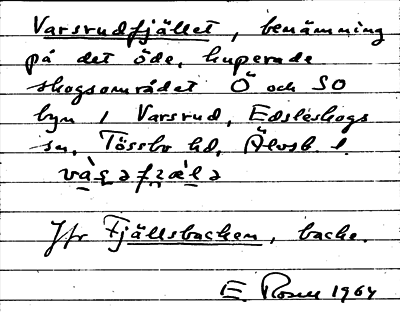 Varsrudfjället, benämning
på det öde, kuperade
skogsområdet Ö och SO
byn / Varsrud, Edsleskogs
sn, Tössbo hd, Älvsb. l.
Jfr Fjällsbacken, backe.
E. Rosell 1964